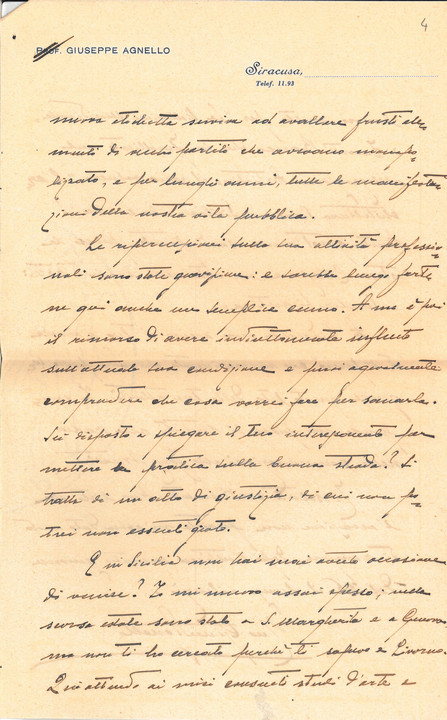 4
PROF. GIUSEPPE AGNELLO
Siracusa,
Telef. 11.93
nuova etichetta serviva ad avallare frusti ele-
menti di vecchi partiti che avevano monopo-
lizzato, e per lunghi anni, tutte le manifesta-
zioni della nostra vita pubblica.
Le ripercussioni sulla sua attività professio-
nali sono state gravissime: e sarebbe lungo farte-
ne qui anche un semplice cenno. A me è poi
il rimorso di avere indirettamente influito
sull'attuale sua condizione e puoi agevolmente
comprendere che cosa vorrei fare per sanarla.
Sei disposto a spiegare il tuo interessamento per
mettere la pratica sulla buona strada? Si
tratta di un atto di giustizia, di cui non po-
trei non esserti grato.
E in Sicilia non hai mai avuto occasione
di venire? Io mi muovo assai spesso; nella
scorsa estate sono stato a S. Margherita e a Genova
ma non ti ho cercato perché ti sapevo a Livorno.
Qui attendo ai miei consueti studi d'arte e